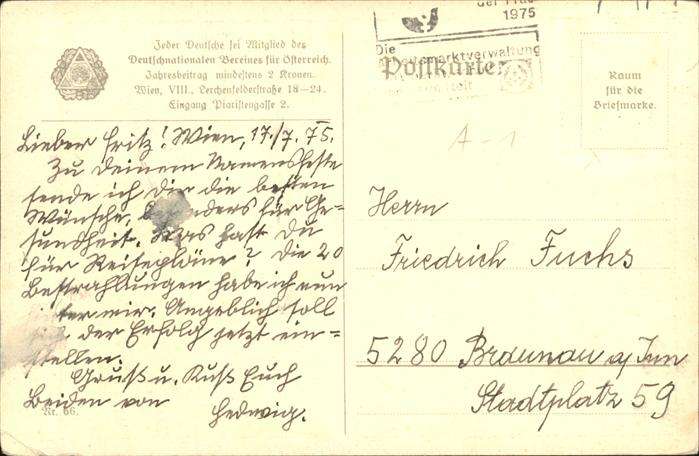 Jeder Deutsche sei Mitglied des
Deutschnationalen Vereines für Österreich.
Jahresbeitrag mindestens 2 Kronen.
Wien, VIII., Lerchenfelderstraße 18—24.
Eingang Piaristengasse 2.
der Frau
1975
Die
marktverwaltung
Postkarte
Raum
für die
Briefmarke.
A-1
Lieber Fritz! Wien, 17./7.75.
Zu deinem Namensfeste
sende ich Dir die besten
Wünsche, besonders für Ge=
sundheit. Was hast Du
für Reisepläne? Die 20
Bestrahlungen habe ich nun
hinter mir. Angeblich soll
sich der Erfolg jetzt ein=
stellen.
Gruß u. Kuß Euch
Beiden von Hedwig.
Nr. 66.
Herrn
Friedrich Fuchs
5280 Braunau a/Inn
Stadtplatz 59